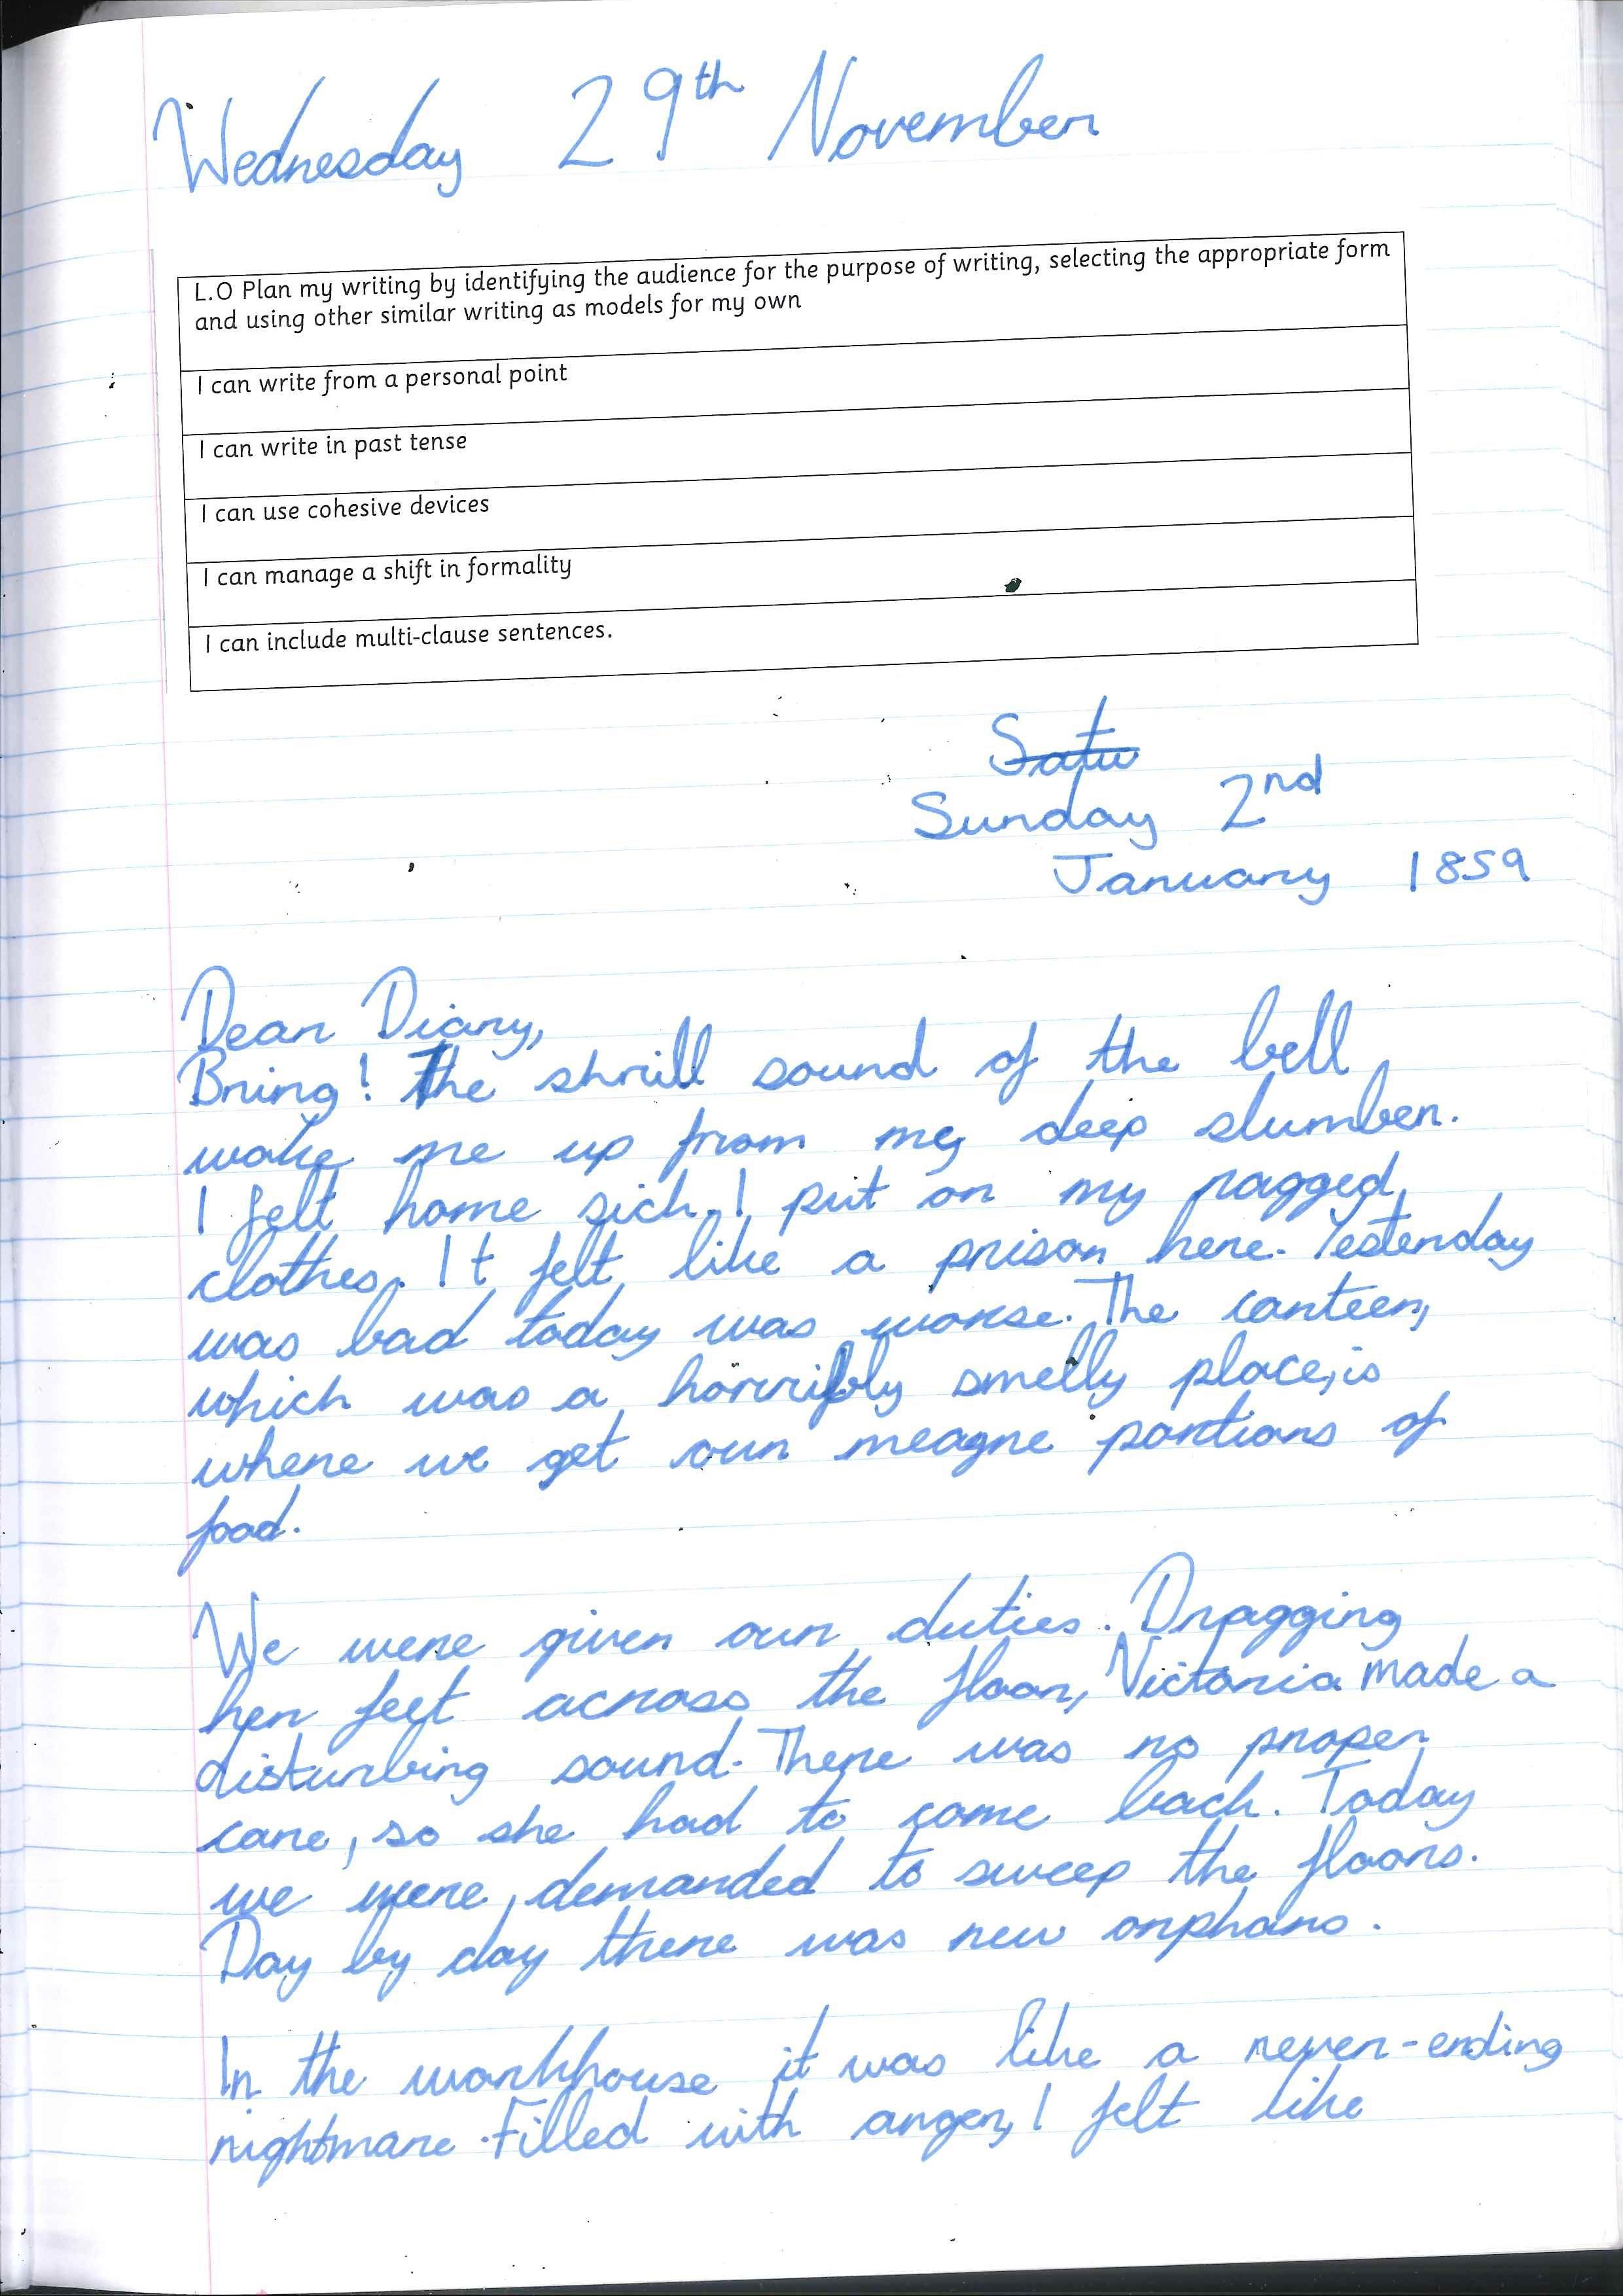 Wednesday 29th November
L.O Plan my writing by identifying the audience for the purpose of writing, selecting the appropriate form
and using other similar writing as models for my own
I can write from a personal point
I can write in past tense
I can use cohesive devices
I can manage a shift in formality
I can include multi-clause sentences.
Satu
Sunday 2nd
January 1859
Dear Diary,
Bring! The shrill sound of the bell
woke me up from my deep slumber.
I felt home sick. I put on my ragged
clothes. It felt like a prison here. Yesterday
was bad today was worse. The canteen,
which was a horribly smelly place, is
where we get our meagre portions of
food.
We were given our duties. Dragging
her feet across the floor, Victoria made a
disturbing sound. There was no proper
care, so she had to come back. Today
we were demanded to sweep the floors.
Day by day there was new orphans.
In the workhouse it was like a never-ending
nightmare. Filled with anger, I felt like